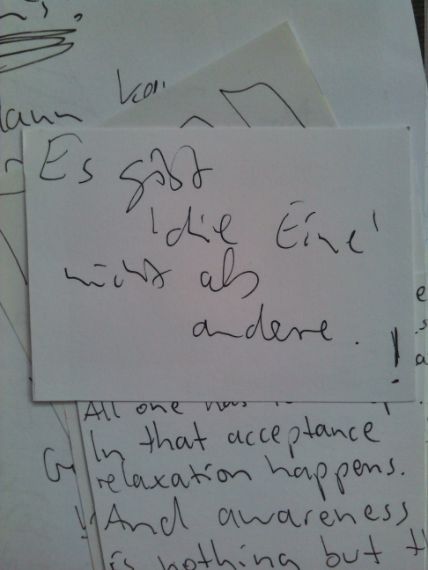 dann
Es gibt
'die Eine'
nicht als
andere.!
All one has
In that acceptance
relaxation happens.
And awareness
is nothing but